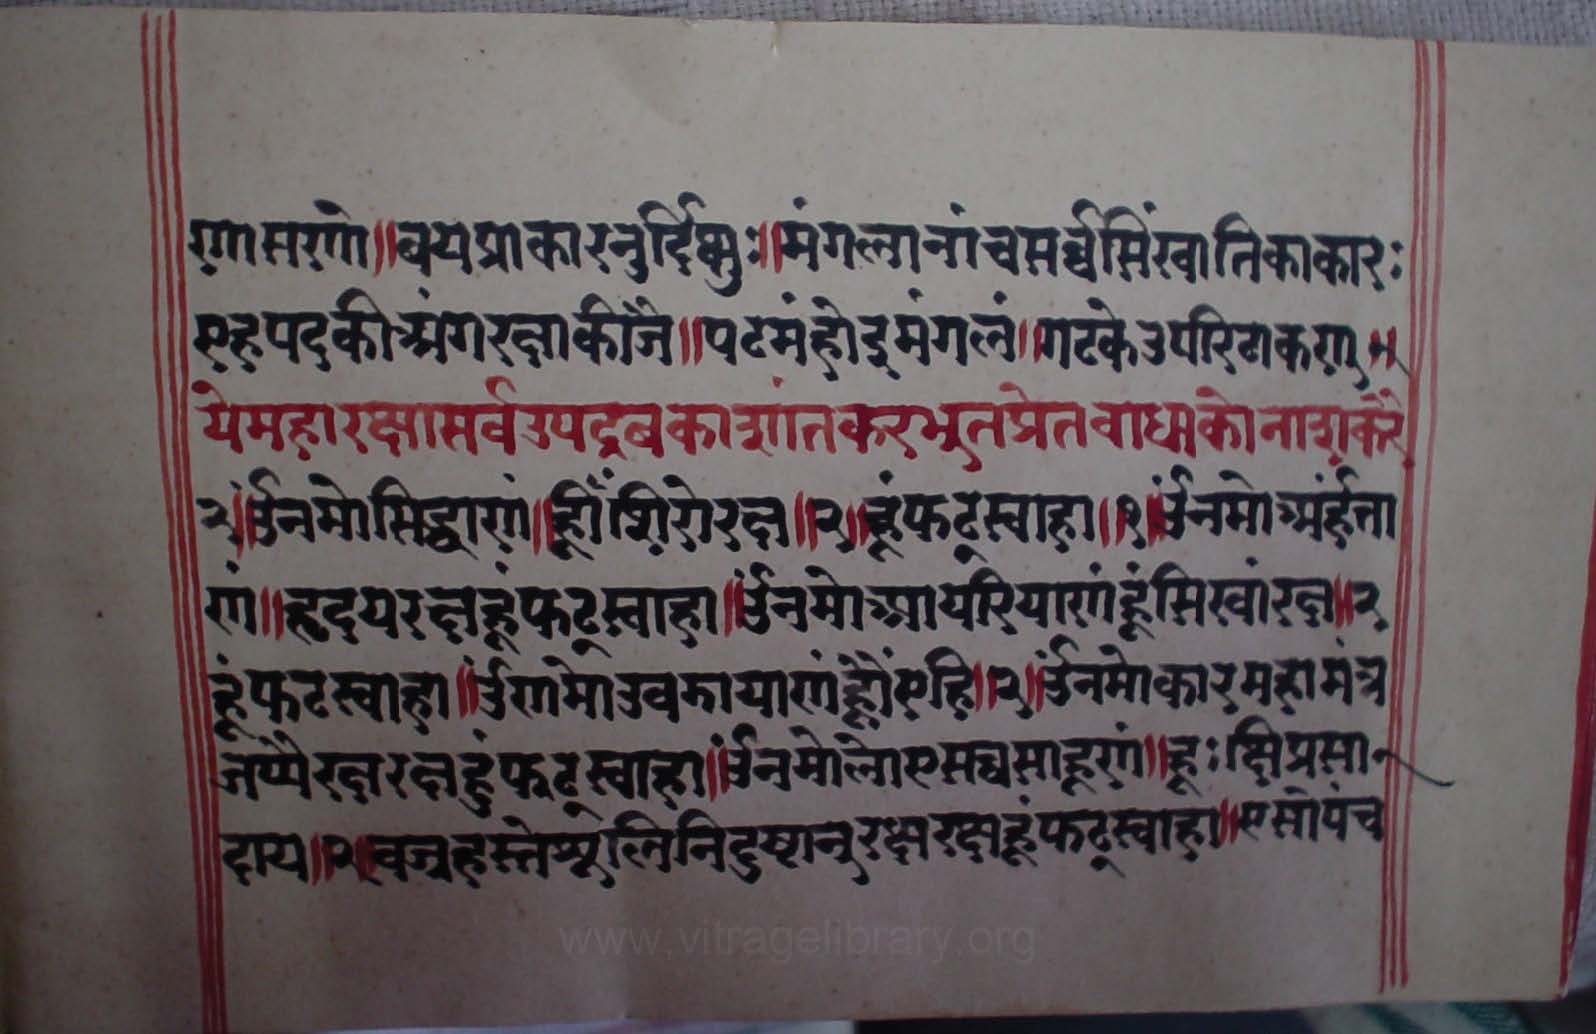 णासणो॥वयप्राकारनुर्दिक्षुः॥मंगलानांचसर्व्वसिंखातिकाकारः
एहपदकीअंगरक्षाकीजै॥पटमंहोइमंगलं॥गटकेउपरिटाकरण॥
येमहारक्षासर्वउपद्रबकाशांतकरभुतप्रेतवाधाकोनाशकरै
२॥ॐनमोसिद्धाणं॥ह्रीँशिरोरक्ष॥२॥हूंफट्स्वाहा॥१॥ॐनमोअंर्हता
णं॥हृदयरक्षहूंफट्स्वाहा॥ॐनमोआयरियाणंहूंसिखांरक्ष॥२
हूंफटस्वाहा॥ॐणमोउवझायाणंह्रौंएहि॥२॥ॐनमोकारमहामंत्र
जप्पैरक्षरक्षहुंफट्स्वाहा॥ॐनमोलोएसव्वसाहूणं॥हूःक्षिप्रसा
दाय॥२॥वज्रहस्तेशूलिनिदुष्टानुरक्षरक्षहूंफट्स्वाहा॥एसोपंच
www.vitragelibrary.org